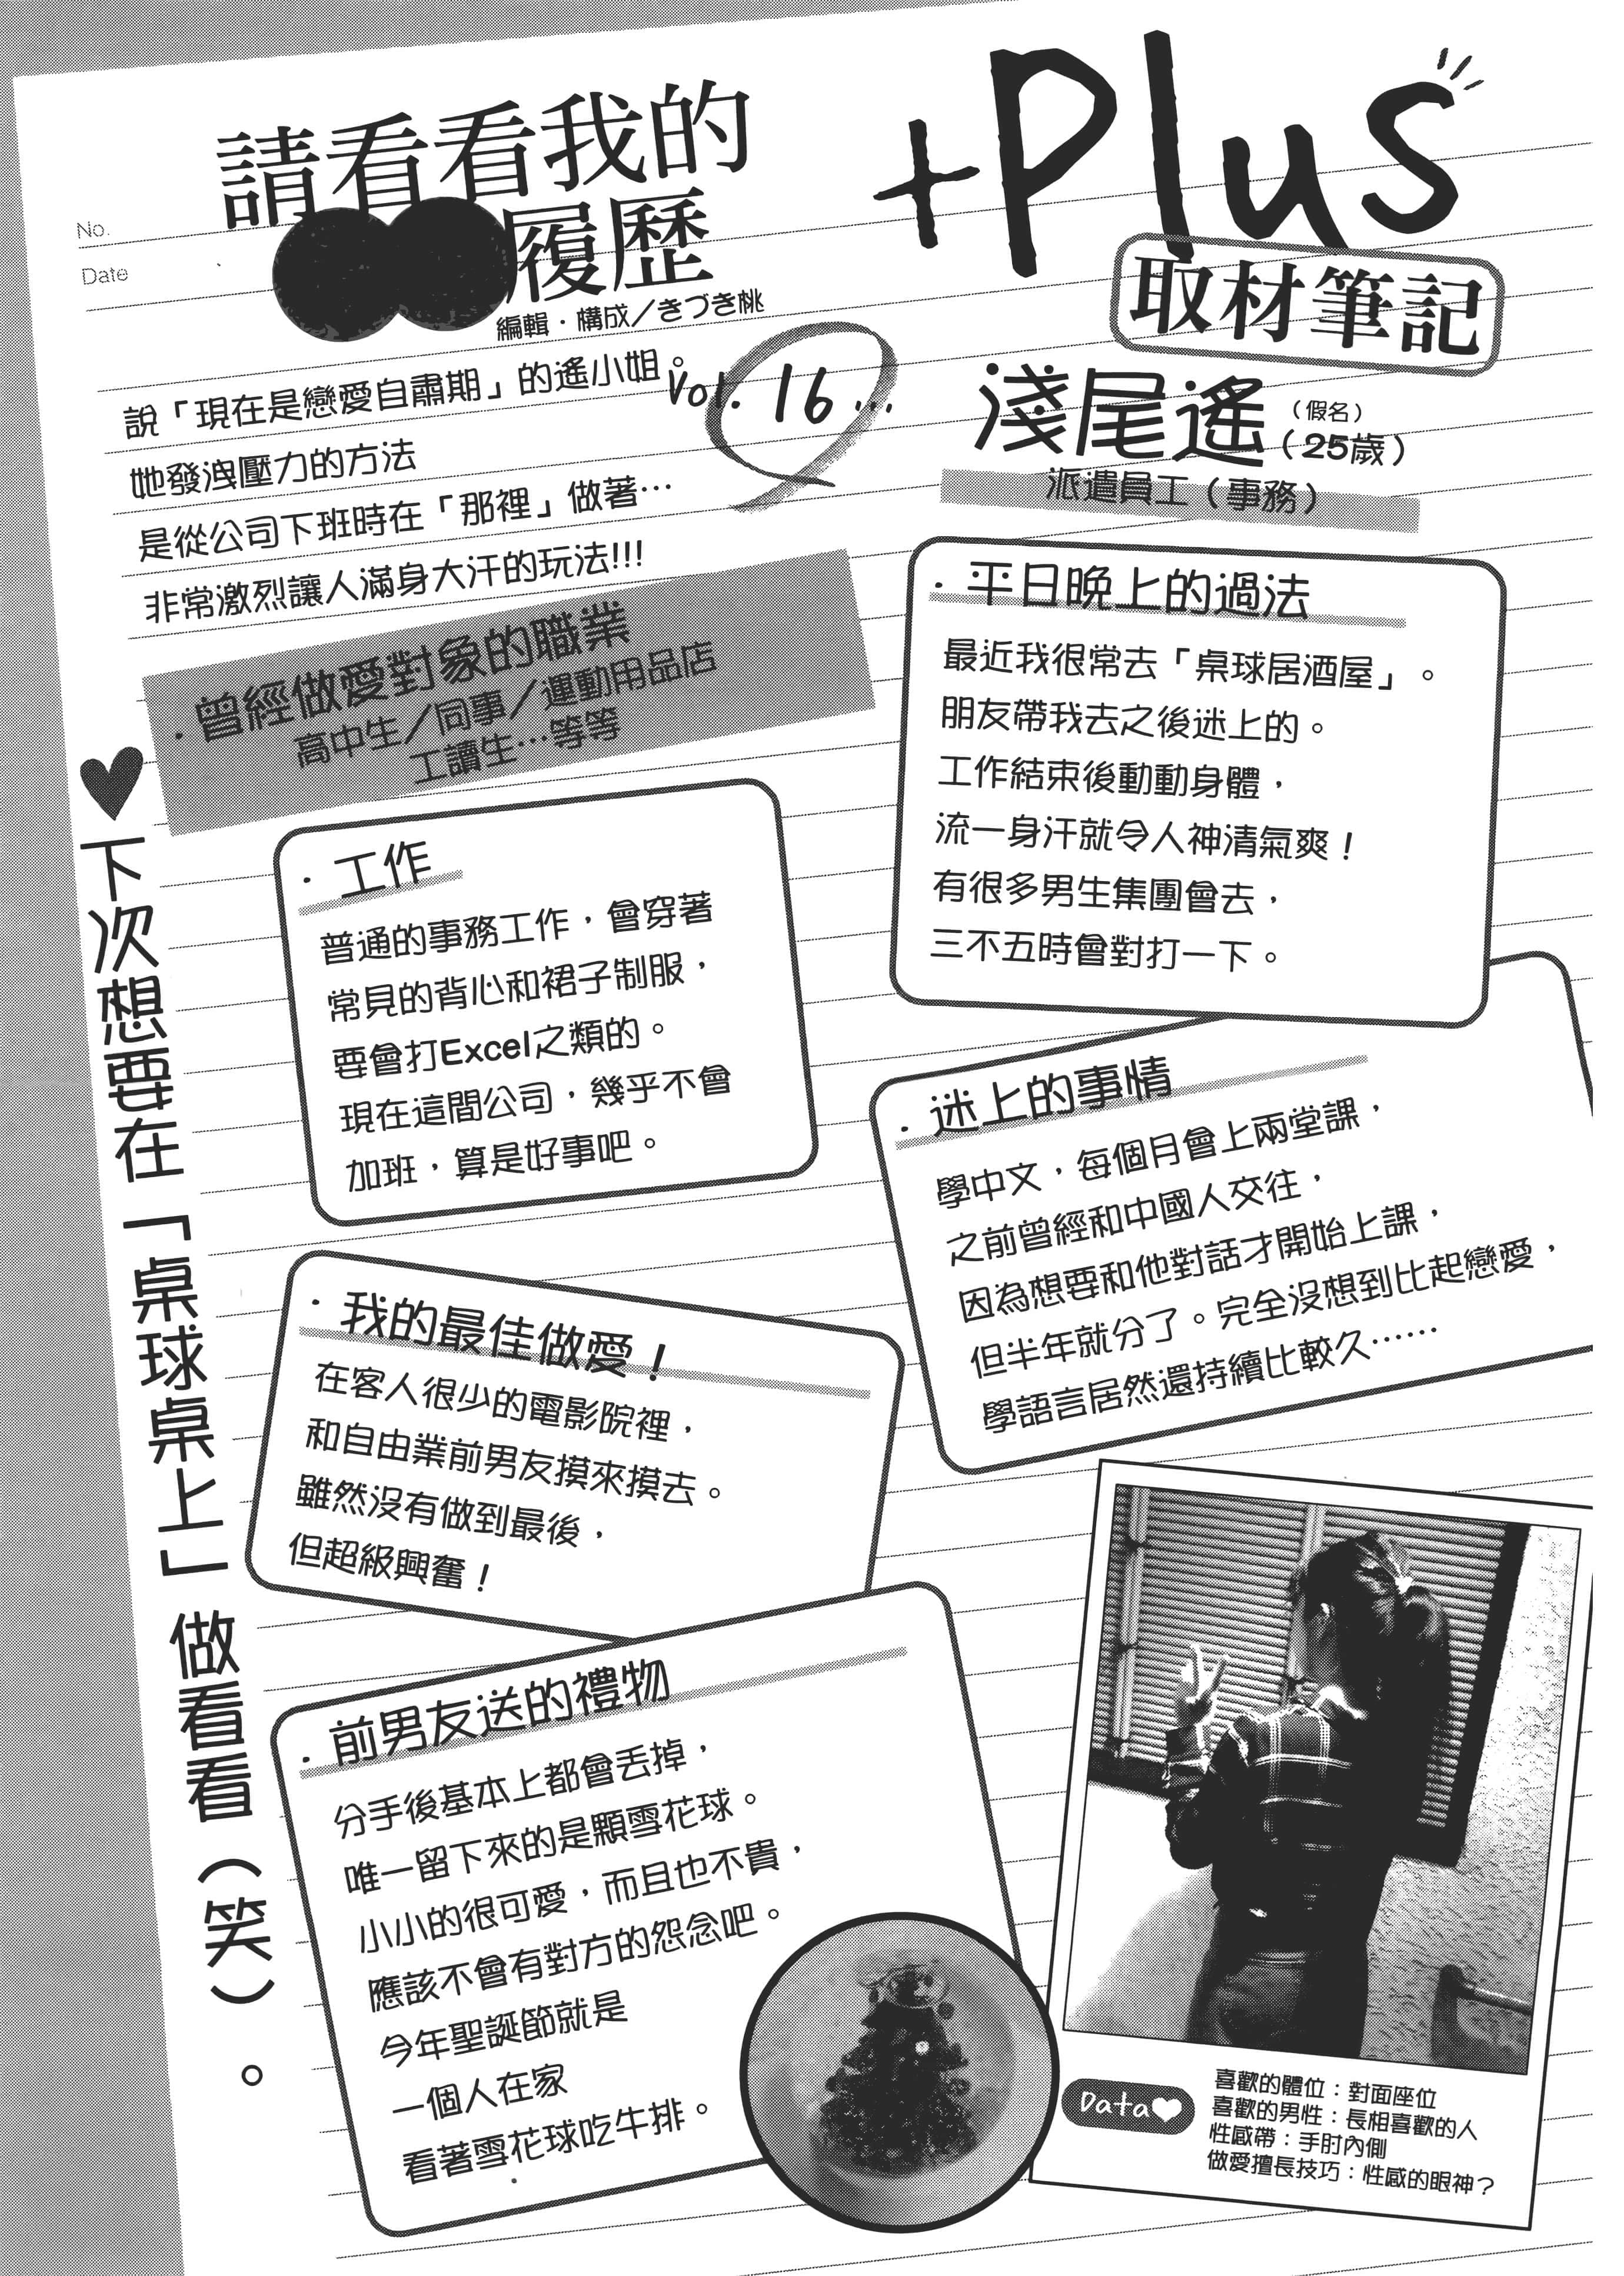 No.
Date
請看看我的
●●履歷
編輯・構成／きづき桃
+Plus
取材筆記
Vol. 16...
淺尾遙
（假名）
（25歲）
派遣員工（事務）
說「現在是戀愛自肅期」的遙小姐。
她發洩壓力的方法
是從公司下班時在「那裡」做著…
非常激烈讓人滿身大汗的玩法!!!
・曾經做愛對象的職業
高中生／同事／運動用品店
工讀生…等等
・平日晚上的過法
最近我很常去「桌球居酒屋」。
朋友帶我去之後迷上的。
工作結束後動動身體，
流一身汗就令人神清氣爽！
有很多男生集團會去，
三不五時會對打一下。
・工作
普通的事務工作，會穿著
常見的背心和裙子制服，
要會打Excel之類的。
現在這間公司，幾乎不會
加班，算是好事吧。
・迷上的事情
學中文，每個月會上兩堂課，
之前曾經和中國人交往，
因為想要和他對話才開始上課，
但半年就分了。完全沒想到比起戀愛，
學語言居然還持續比較久……
・我的最佳做愛！
在客人很少的電影院裡，
和自由業前男友摸來摸去。
雖然沒有做到最後，
但超級興奮！
・前男友送的禮物
分手後基本上都會丟掉，
唯一留下來的是顆雪花球。
小小的很可愛，而且也不貴，
應該不會有對方的怨念吧。
今年聖誕節就是
一個人在家
看著雪花球吃牛排。
♥下次想要在「桌球桌上」做看看（笑）。
Data♥
喜歡的體位：對面座位
喜歡的男性：長相喜歡的人
性感帶：手肘內側
做愛擅長技巧：性感的眼神？